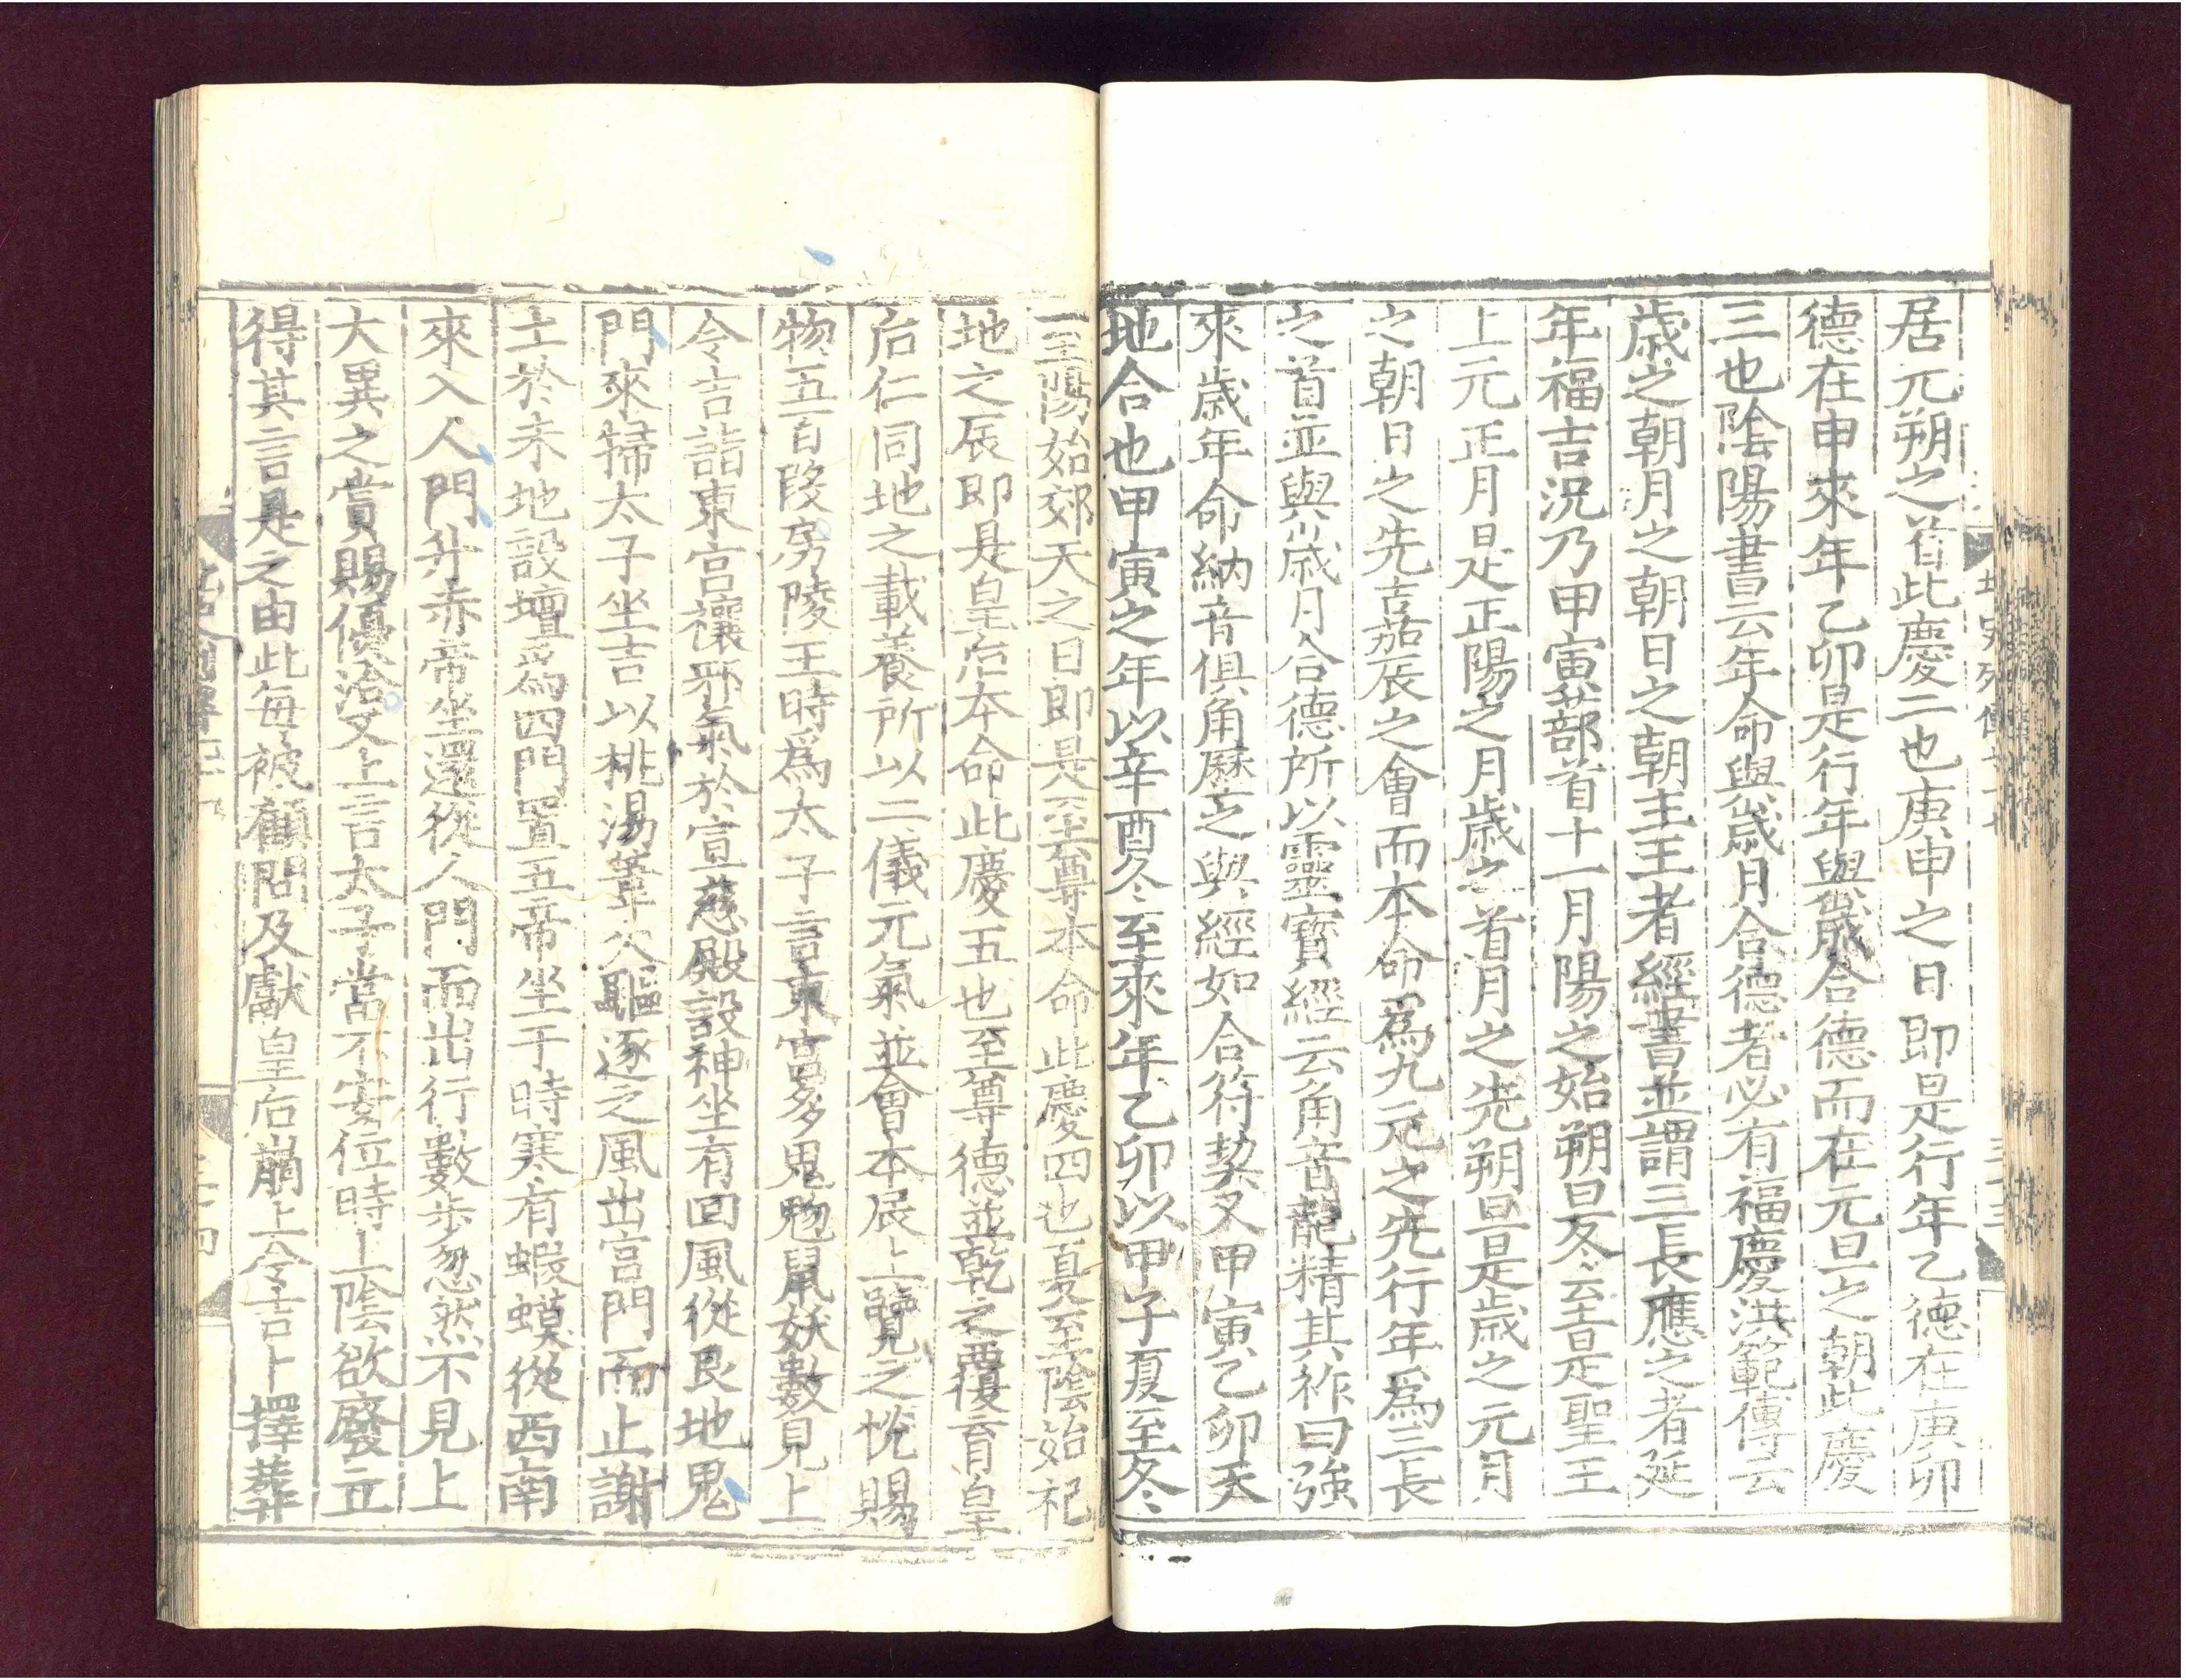 居元朔之首此慶二也庚申之日即是行年乙德在庚卯
德在申來年乙卯是行年與歲合德而在元旦之朝此慶
三也陰陽書云年命與歲月合德者必有福慶洪範傳云
歲之朝月之朝日之朝主王者經書並謂三長應之者延
年福吉況乃甲寅蔀首十一月陽之始朔旦冬至是聖王
上元正月是正陽之月歲之首月之先朔旦是歲之元月
之朝日之先吉茄辰之會而本命爲九元之先行年爲三長
之首並與歲月合德所以靈寶經云角音龍精其祚曰強
來歲年命納音俱角曆之與經如合符契又甲寅乙卯天
地合也甲寅之年以辛酉冬至來年乙卯以甲子夏至冬
至陽始郊天之日即是至尊本命此慶四也夏至陰始祀
地之辰即是皇后本命此慶五也至尊德並乾之覆育皇
后仁同地之載養所以二儀元氣並會本辰上覽之悅賜
物五百段房陵王時爲太子言東宮多鬼魅鼠妖數見上
令吉詣東宮禳邪氣於宣慈殿設神坐有回風從艮地鬼
門來掃太子坐吉以桃湯葦火驅逐之風出宮門而止謝
土於未地設壇爲四門置五帝坐于時寒有蝦蟆從西南
來入人門升赤帝坐還從人門而出行數步忽然不見上
大異之賞賜優洽又上言太子當不安位時上陰欲廢立
得其言是之由此每被顧問及獻皇后崩上令吉卜擇葬